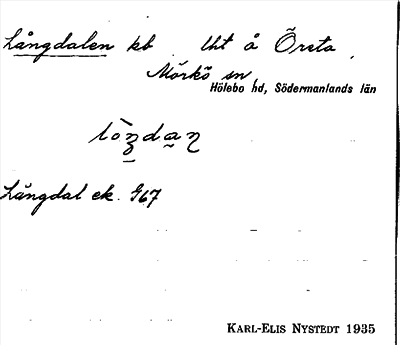 Långdalen kb. Uht å Öreta,
Mörkö sn,
Hölebo hd, Södermanlands län
Långdal ek. 967
KARL-ELIS NYSTEDT 1935